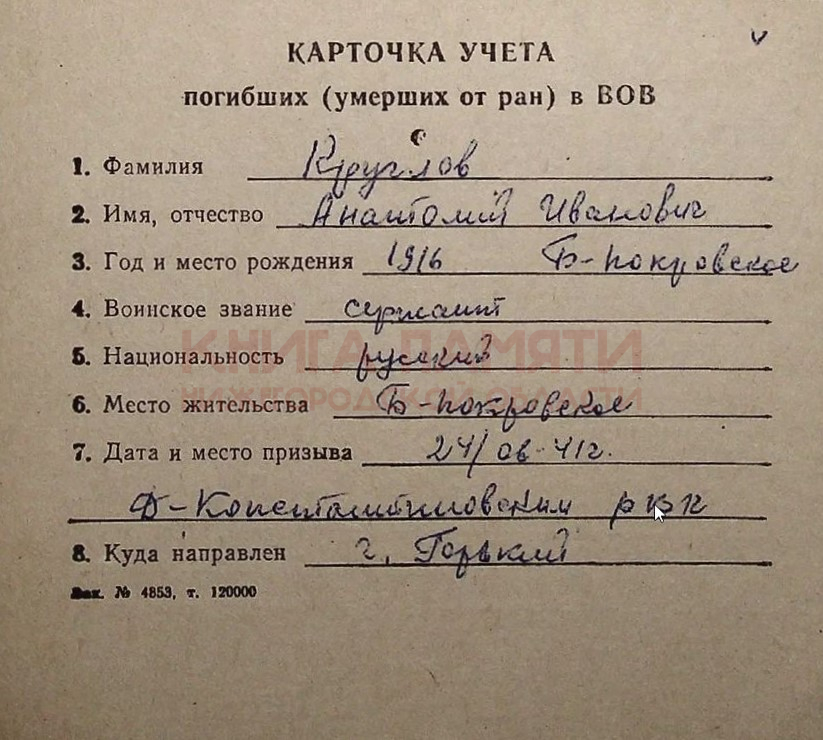 КАРТОЧКА УЧЕТА
погибших (умерших от ран) в ВОВ
1. Фамилия Круглов
2. Имя, отчество Анатолий Иванович
3. Год и место рождения 1916 Б-Покровское
4. Воинское звание сержант
КНИГА ПАМЯТИ
5. Национальность русский
НИЖЕГОРОДСКОЙ ОБЛАСТИ
6. Место жительства Б-Покровское
7. Дата и место призыва 24/ 41г.
Д-Константиновским рвк
8. Куда направлен г. Горький
Зак. № 4853, т. 120000